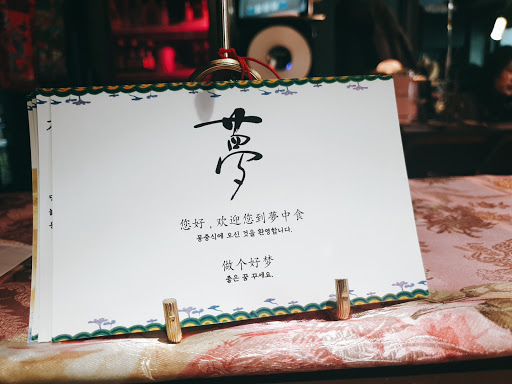 夢
您好，欢迎您到夢中食
몽중식에 오신 것을 환영합니다.
做个好梦
좋은 꿈 꾸세요.